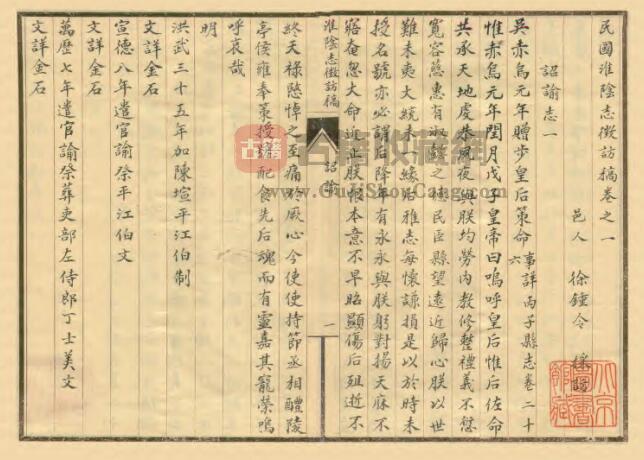 民國淮陰志徵訪稿卷之一
邑人 徐鍾令 採訪
詔諭志一
吳赤烏元年贈步皇后策命 事詳丙子縣志卷二十六
惟赤烏元年閏月戊子皇帝曰嗚呼皇后惟后佐命
共承天地虔恭夙夜與朕均勞內教修整禮義不愆
寬容慈惠有淑懿之德民臣縣望遠近歸心朕以世
難未夷大統未一緣后雅志每懷謙損是以於時未
授名號亦必謂后降年有永永與朕躬對揚天庥不
寤奄忽大命近止朕恨本意不早昭顯傷后殂逝不
淮陰志徵訪稿
詔諭
一
終天祿愍悼之至痛於厥心今使使持節丞相醴陵
亭侯雍奉策授號配食先后魂而有靈嘉其寵榮嗚
呼哀哉
明
洪武三十五年加陳瑄平江伯制
文詳金石
宣德八年遣官諭祭平江伯文
文詳金石
萬歷七年遣官諭祭葬吏部左侍郎丁士美文
文詳金石
古籍
古籍收藏網
www.GujiShouCang.com